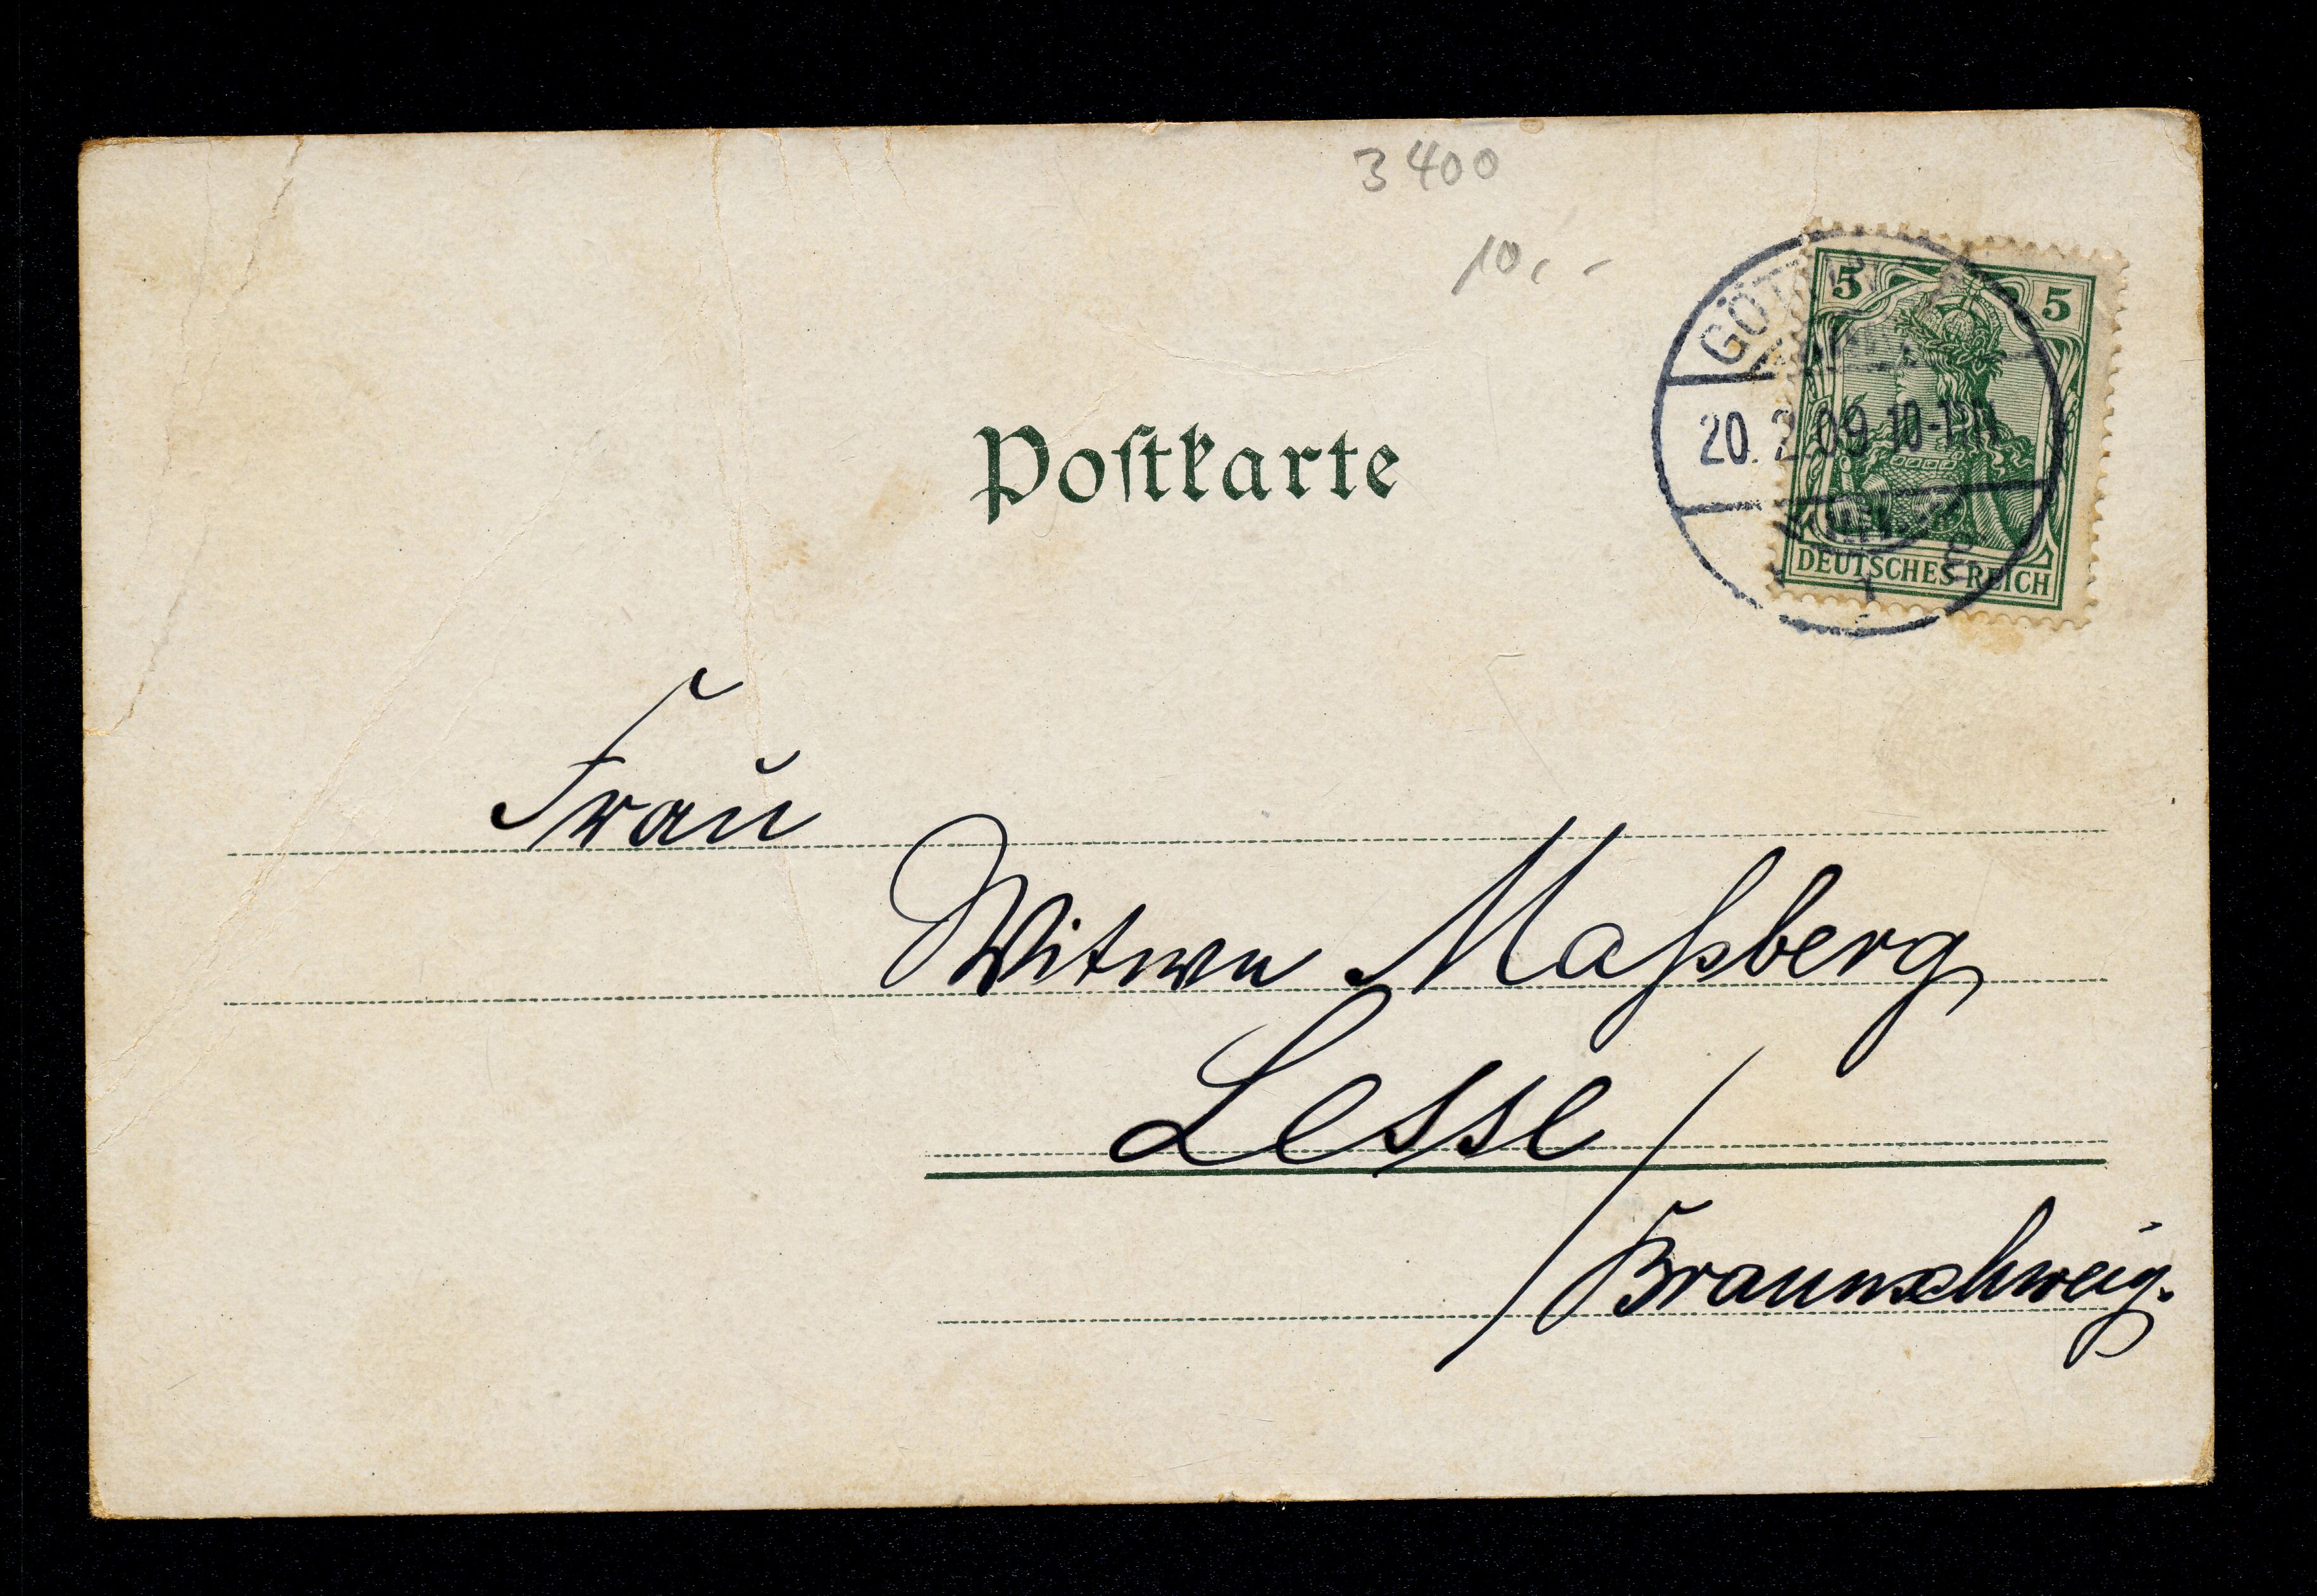 3400
10,-
5 5
20. 2. 09 10-11N
DEUTSCHES REICH
Postkarte
Frau
Witwe Maßberg
Lesse /
Braunschweig.